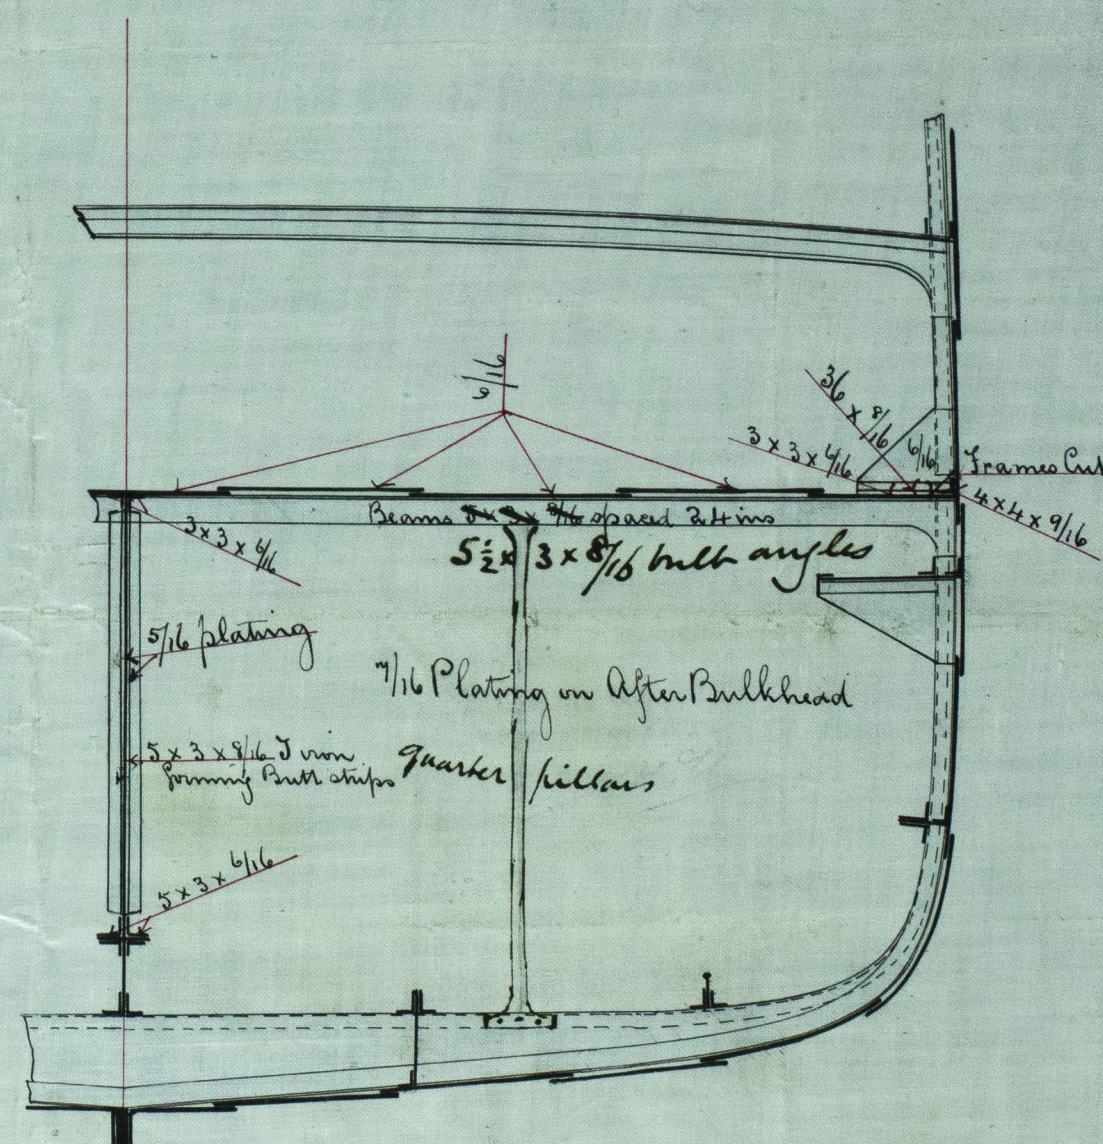 6/16
36 x 8/16
3 x 3 x 6/16
6/16
Frames Cut
4 x 4 x 9/16
Beams spaced 24 ins
5½ x 3 x 8/16 bulb angles
3 x 3 x 6/16
5/16 plating
7/16 Plating on After Bulkhead
5 x 3 x 8/16 T iron
forming Butt strips
quarter pillars
5 x 3 x 6/16